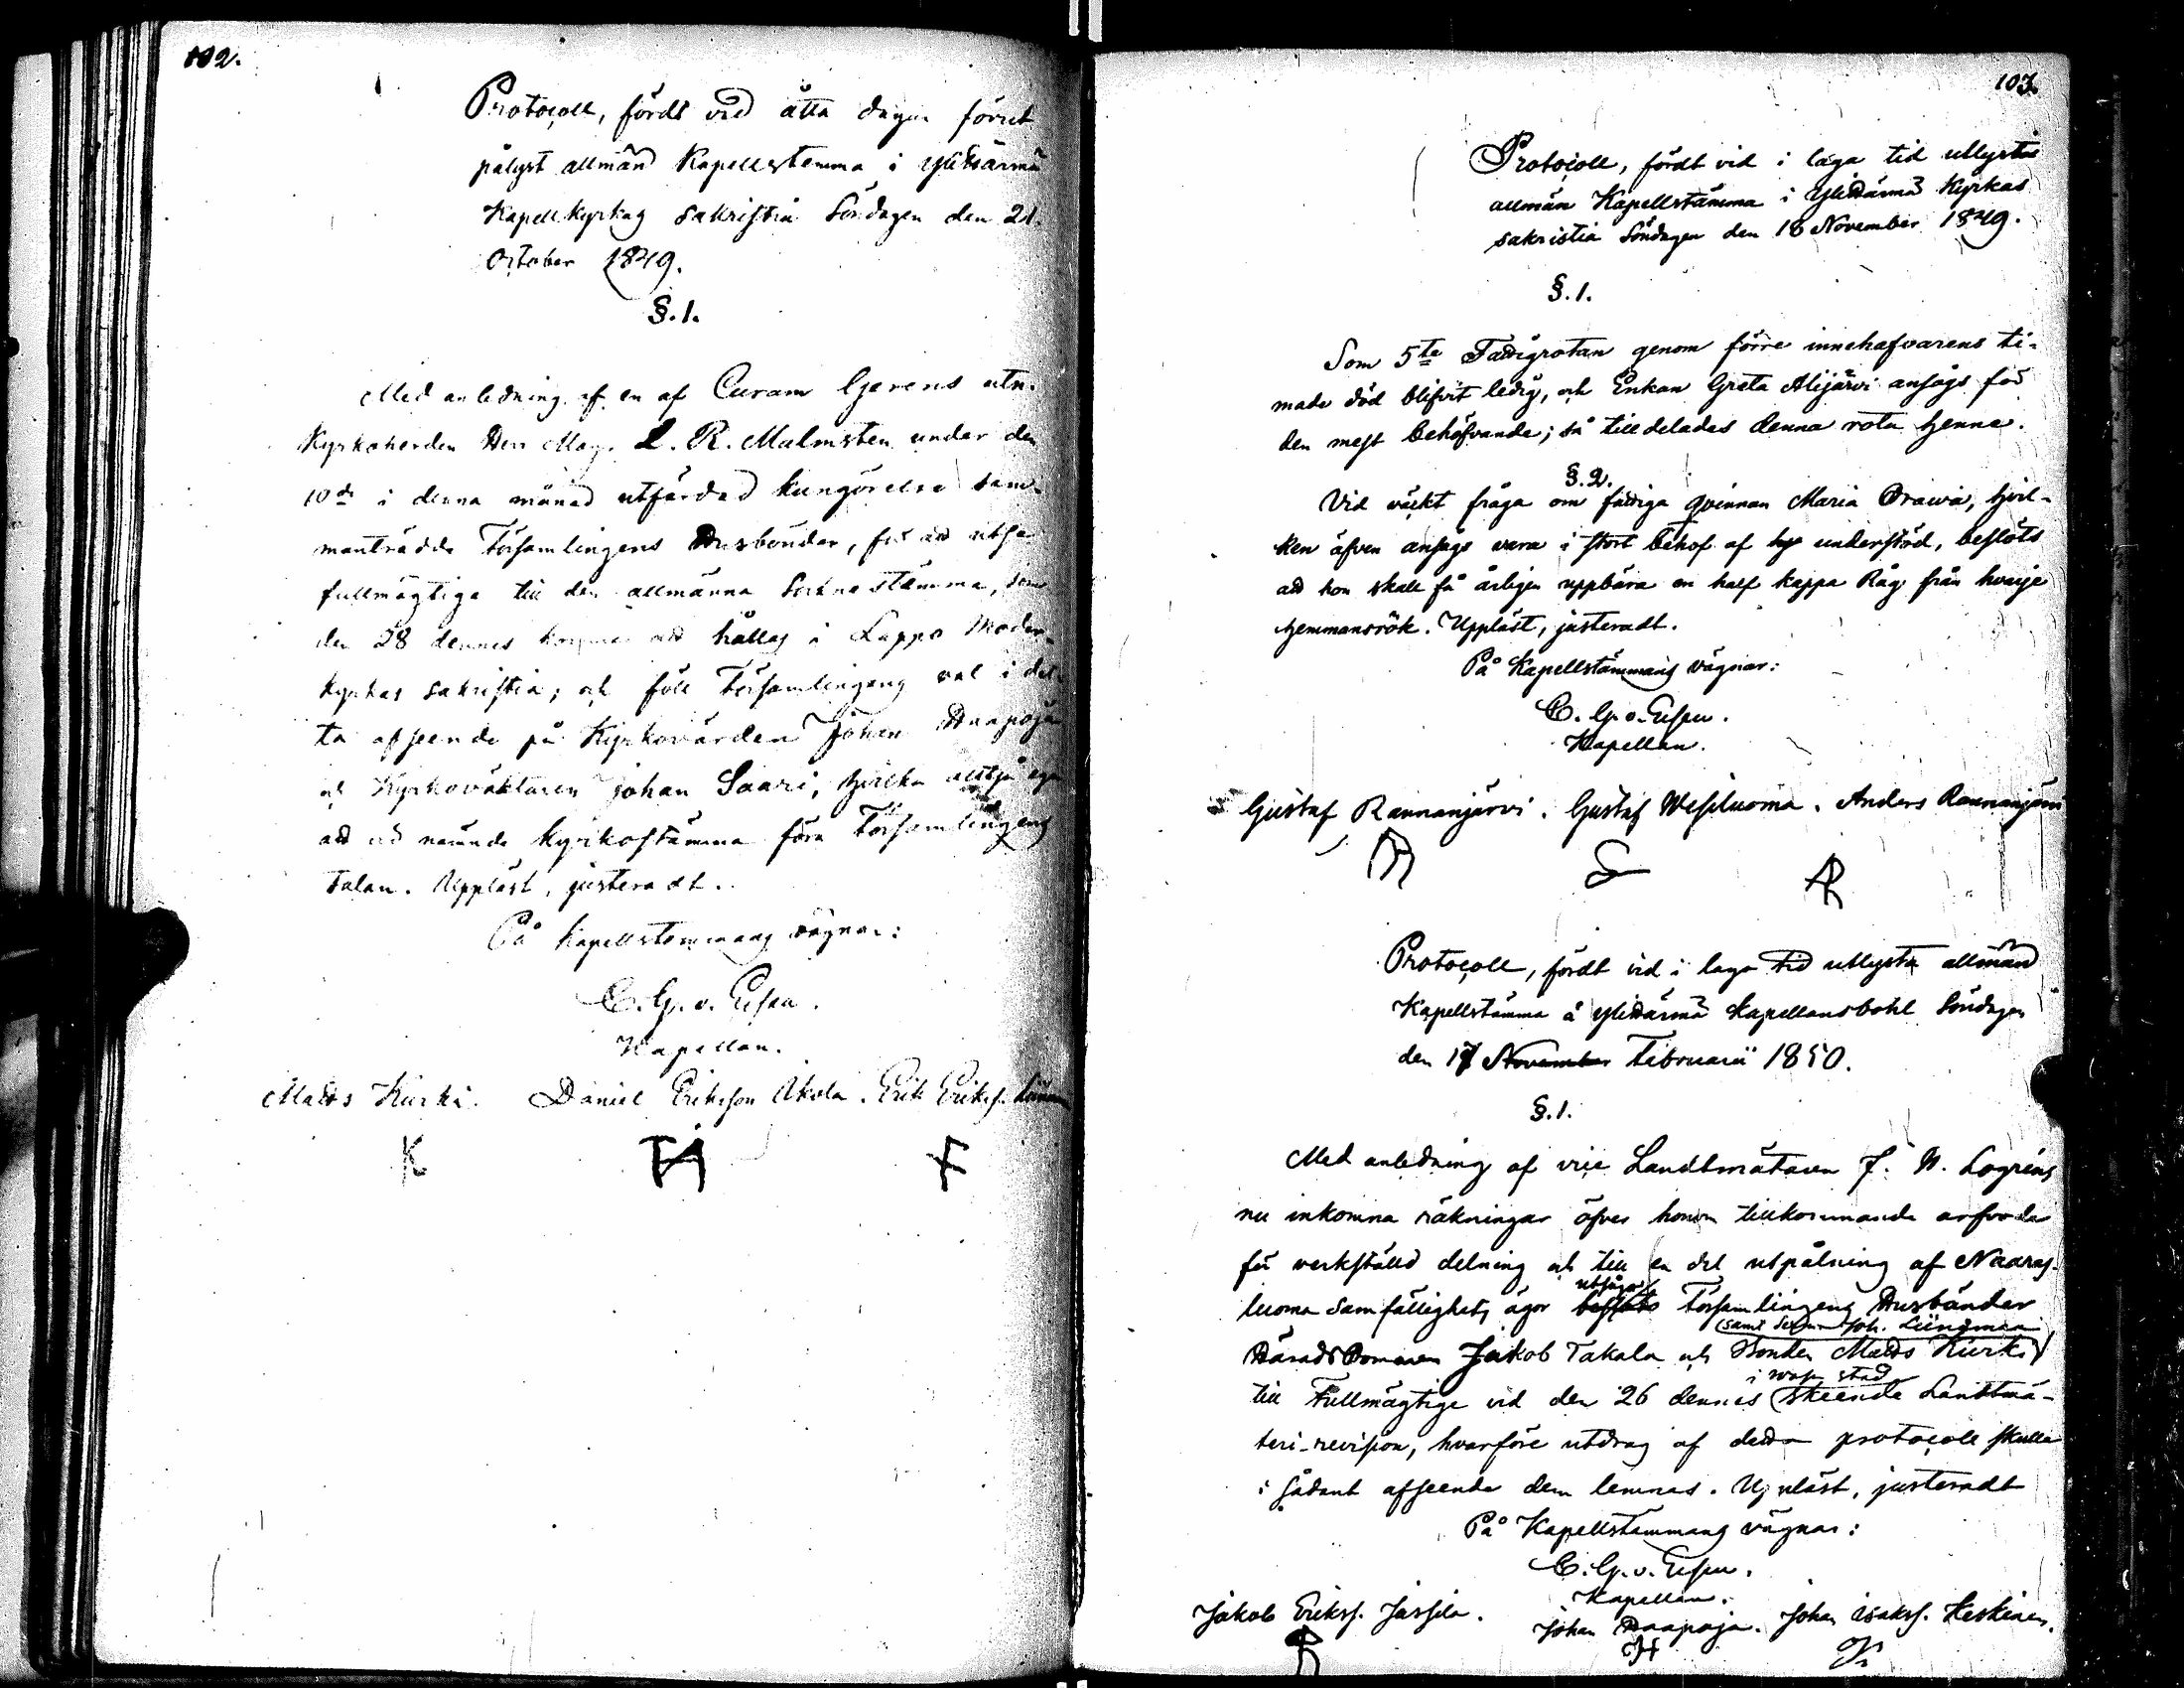 102.
Protocoll, fördt vid åtta dagar förut
pålyst allmän Kapellstemma i Ylihärmä
Kapellkyrkas sakristia Söndagen den 21.
October 1849.
§. 1.
Med anledning af en af Curam Gerens utn.
Kyrkoherden Herr Mag. L. R. Malmsten under den
10de i denna månad utfärdad kungörelse sam-
manträdde Församlingens Husbönder, för att utse
fullmägtige till den allmänna Sockne stämma, som
den 28 dennes kommer att hållas i Lappo Moder-
kyrkas sakristia; och föll Församlingens val i det-
ta afseende på Kyrkovärden Johan Haapoja
och Kyrkoväktaren Johan Saari, hvilka alltså ega
att vid nämnde Kyrkostämma föra Församlingens
talan. Uppläst, justeradt.
På Kapellstemmans vägnar:
C. G. v. Essen.
Kapellan.
Matts Kurki. Daniel Eriksson Ukola. Erik Erikss. Liinam
K
103.
Protocoll, fördt vid i laga tid utlystad
allmän Kapellstämma i Ylihärmä Kyrkas
sakristia Söndagen den 18 November 1849.
§. 1.
Som 5te Fattigrotan genom förre innehafvarens ti-
made död blifvit ledig, och Enkan Greta Alijärvi ansågs för
den mest behöfvande; så tilldelades denna rota henne.
§. 2.
Vid väckt fråga om fattiga qvinnan Maria Orawa, hvil-
ken äfven ansågs vara i stort behof af understöd, beslöts
att hon skall få årligen uppbära en half kappa Råg från hvarje
hemmansrök. Uppläst, justeradt.
På Kapellstämmans vägnar:
C. G. v. Essen.
Kapellan.
Gustaf Rannanjärvi. Gustaf Wesiluoma. Anders Rannanjärvi
AR
Protocoll, fördt vid i laga tid utlysta allmän
Kapellstämma å Ylihärmä Kapellansbohl Söndagen
den 17 November Februarii 1850.
§. 1.
Med anledning af vice Landtmätaren J. W. Logréns
nu inkomna räkningar öfver honom tillkommande arfvode
för verkställd delning och till en del utpålning af Naaras-
utsågo
luoma Samfällighets ägor beslöts Församlingens Husbönder
samt Joh. Liinamaa
Häradsdomaren Jakob Takala och Bonden Matts Kurki
i Wasa stad
till Fullmägtige vid den 26 dennes skeende Landtmä-
teri-revision, hvarföre utdrag af detta protocoll skulle
i sådant afseende dem lemnas. Uppläst, justeradt
På Kapellstämmans vägnar:
C. G. v. Essen.
Kapellan.
Jakob Erikss. Jassila. Johan Haapoja. Johan Isakss. Keskinen.
JH